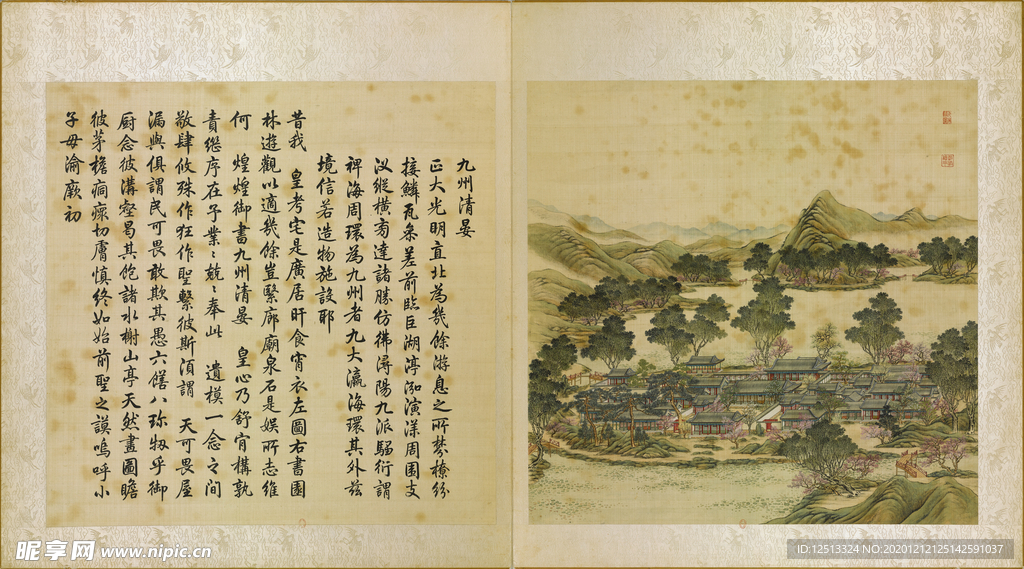 九州清晏
正大光明直北為幾餘游息之所棼橑紛
接鱗瓦參差前臨巨湖渟泓演漾周圍支
汊縱橫旁達諸勝仿彿潯陽九派騶衍謂
裨海周環為九州者九大瀛海環其外茲
境信若造物施設耶
昔我 皇考宅是廣居旰食宵衣左圖右書園
林遊觀以適幾餘豈繄廊廟泉石是娛所志維
何 煌煌御書九州清晏 皇心乃舒肯構孰
責繼序在予業〻兢〻奉此 遺模一念之间
敬肆攸殊作狂作聖繫彼斯須謂 天可畏屋
漏與俱謂民可畏敢欺其愚六膳八珍牣乎御
厨念彼溝壑曷其飽諸水榭山亭天然畫圖瞻
彼茅檐痌瘝切膚慎終如始前聖之謨嗚呼小
子毋渝厥初
昵享网 www.nipic.cn
ID:12513324 NO:20201212125142591037